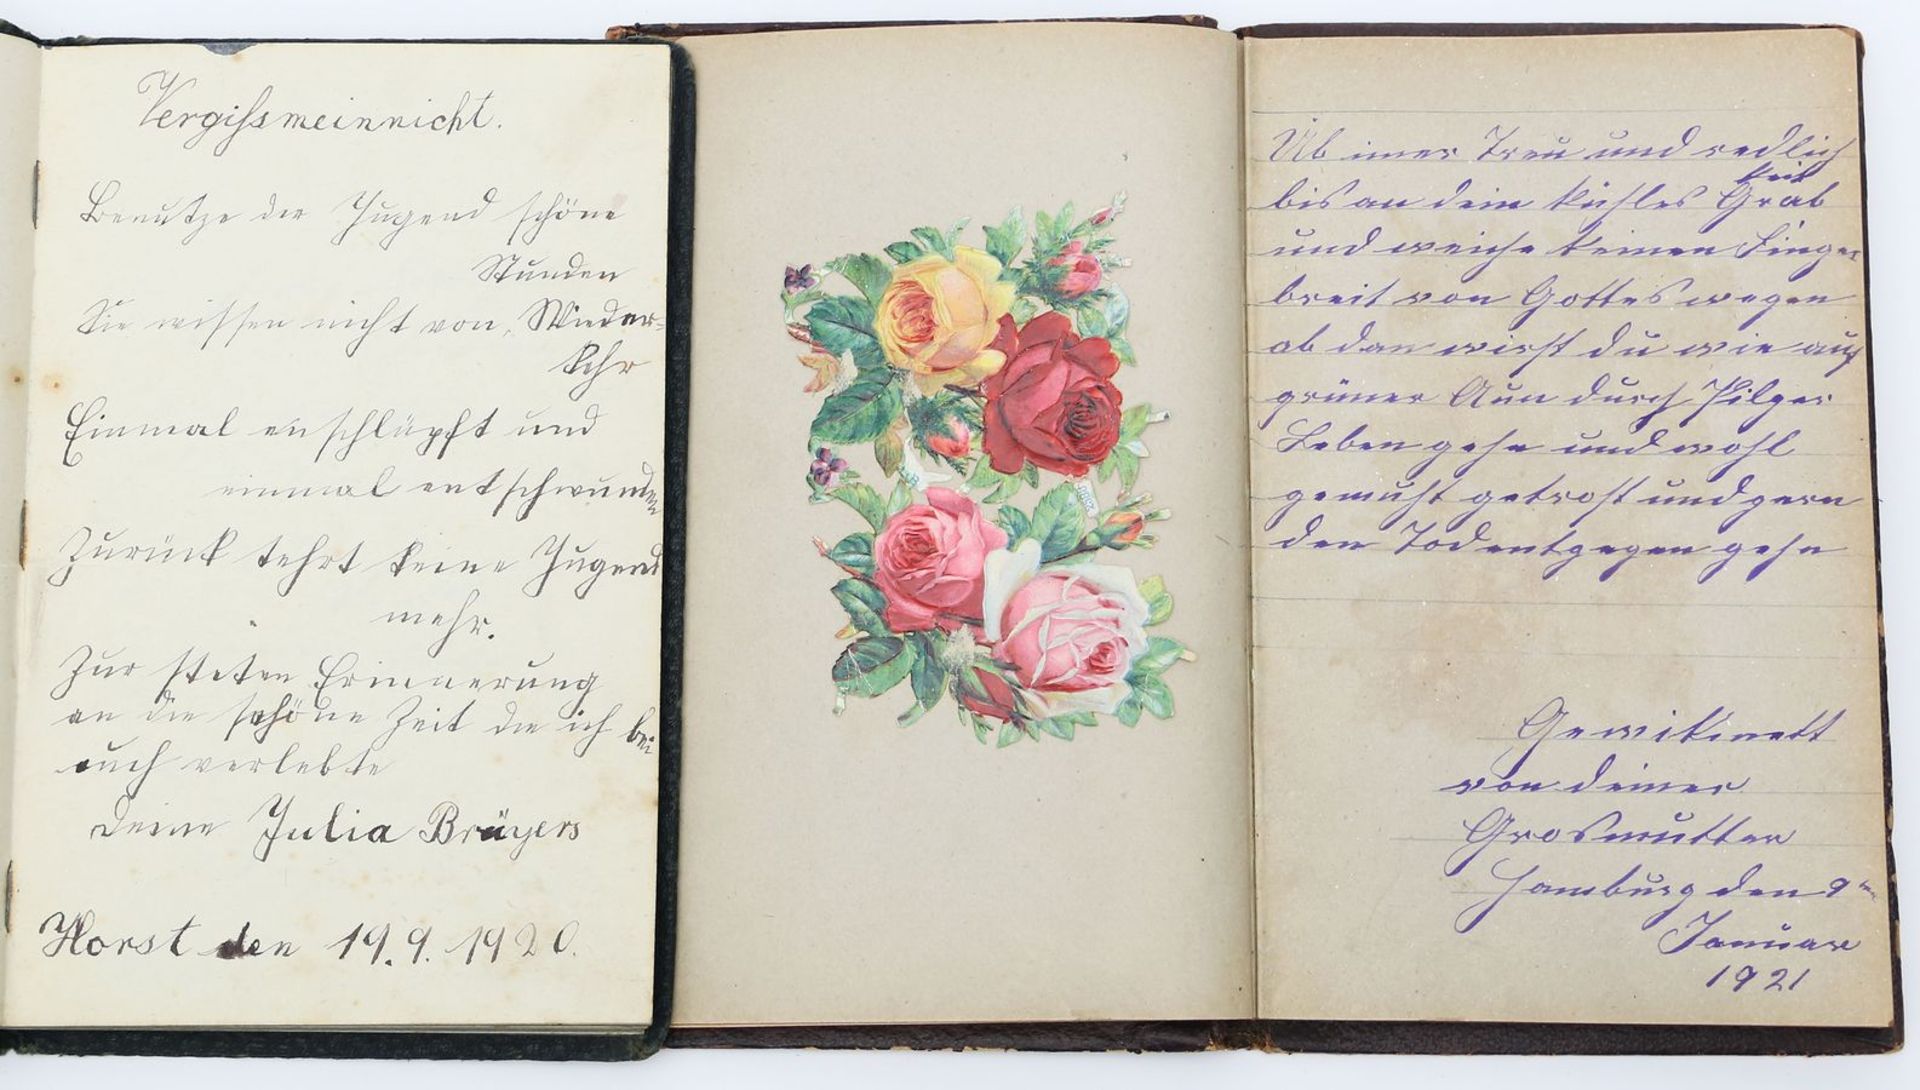 Vergissmeinnicht.
Benutze der Jugend schöne
Stunden
Sie wissen nicht von Wieder-
kehr
Einmal enschlüpft und
einmal entschwunden
Zurück kehrt keine Jugend
mehr.
Zur steten Erinnerung
an die schöne Zeit die ich bei
euch verlebte
Deine Julia Brüyers
Horst den 19.9.1920.
Üb imer Treu und redlich
keit
bis an dein kühles Grab
und weiche keinen Finger
breit von Gottes wegen
ab dan wirst du wie auf
grüner Aun durch Pilger
Leben gehn und wohl
gemuht getrost und gern
den Tod entgegen gehn
von deiner
Grosmutter
Hamburg den 9ten
Januar
1921